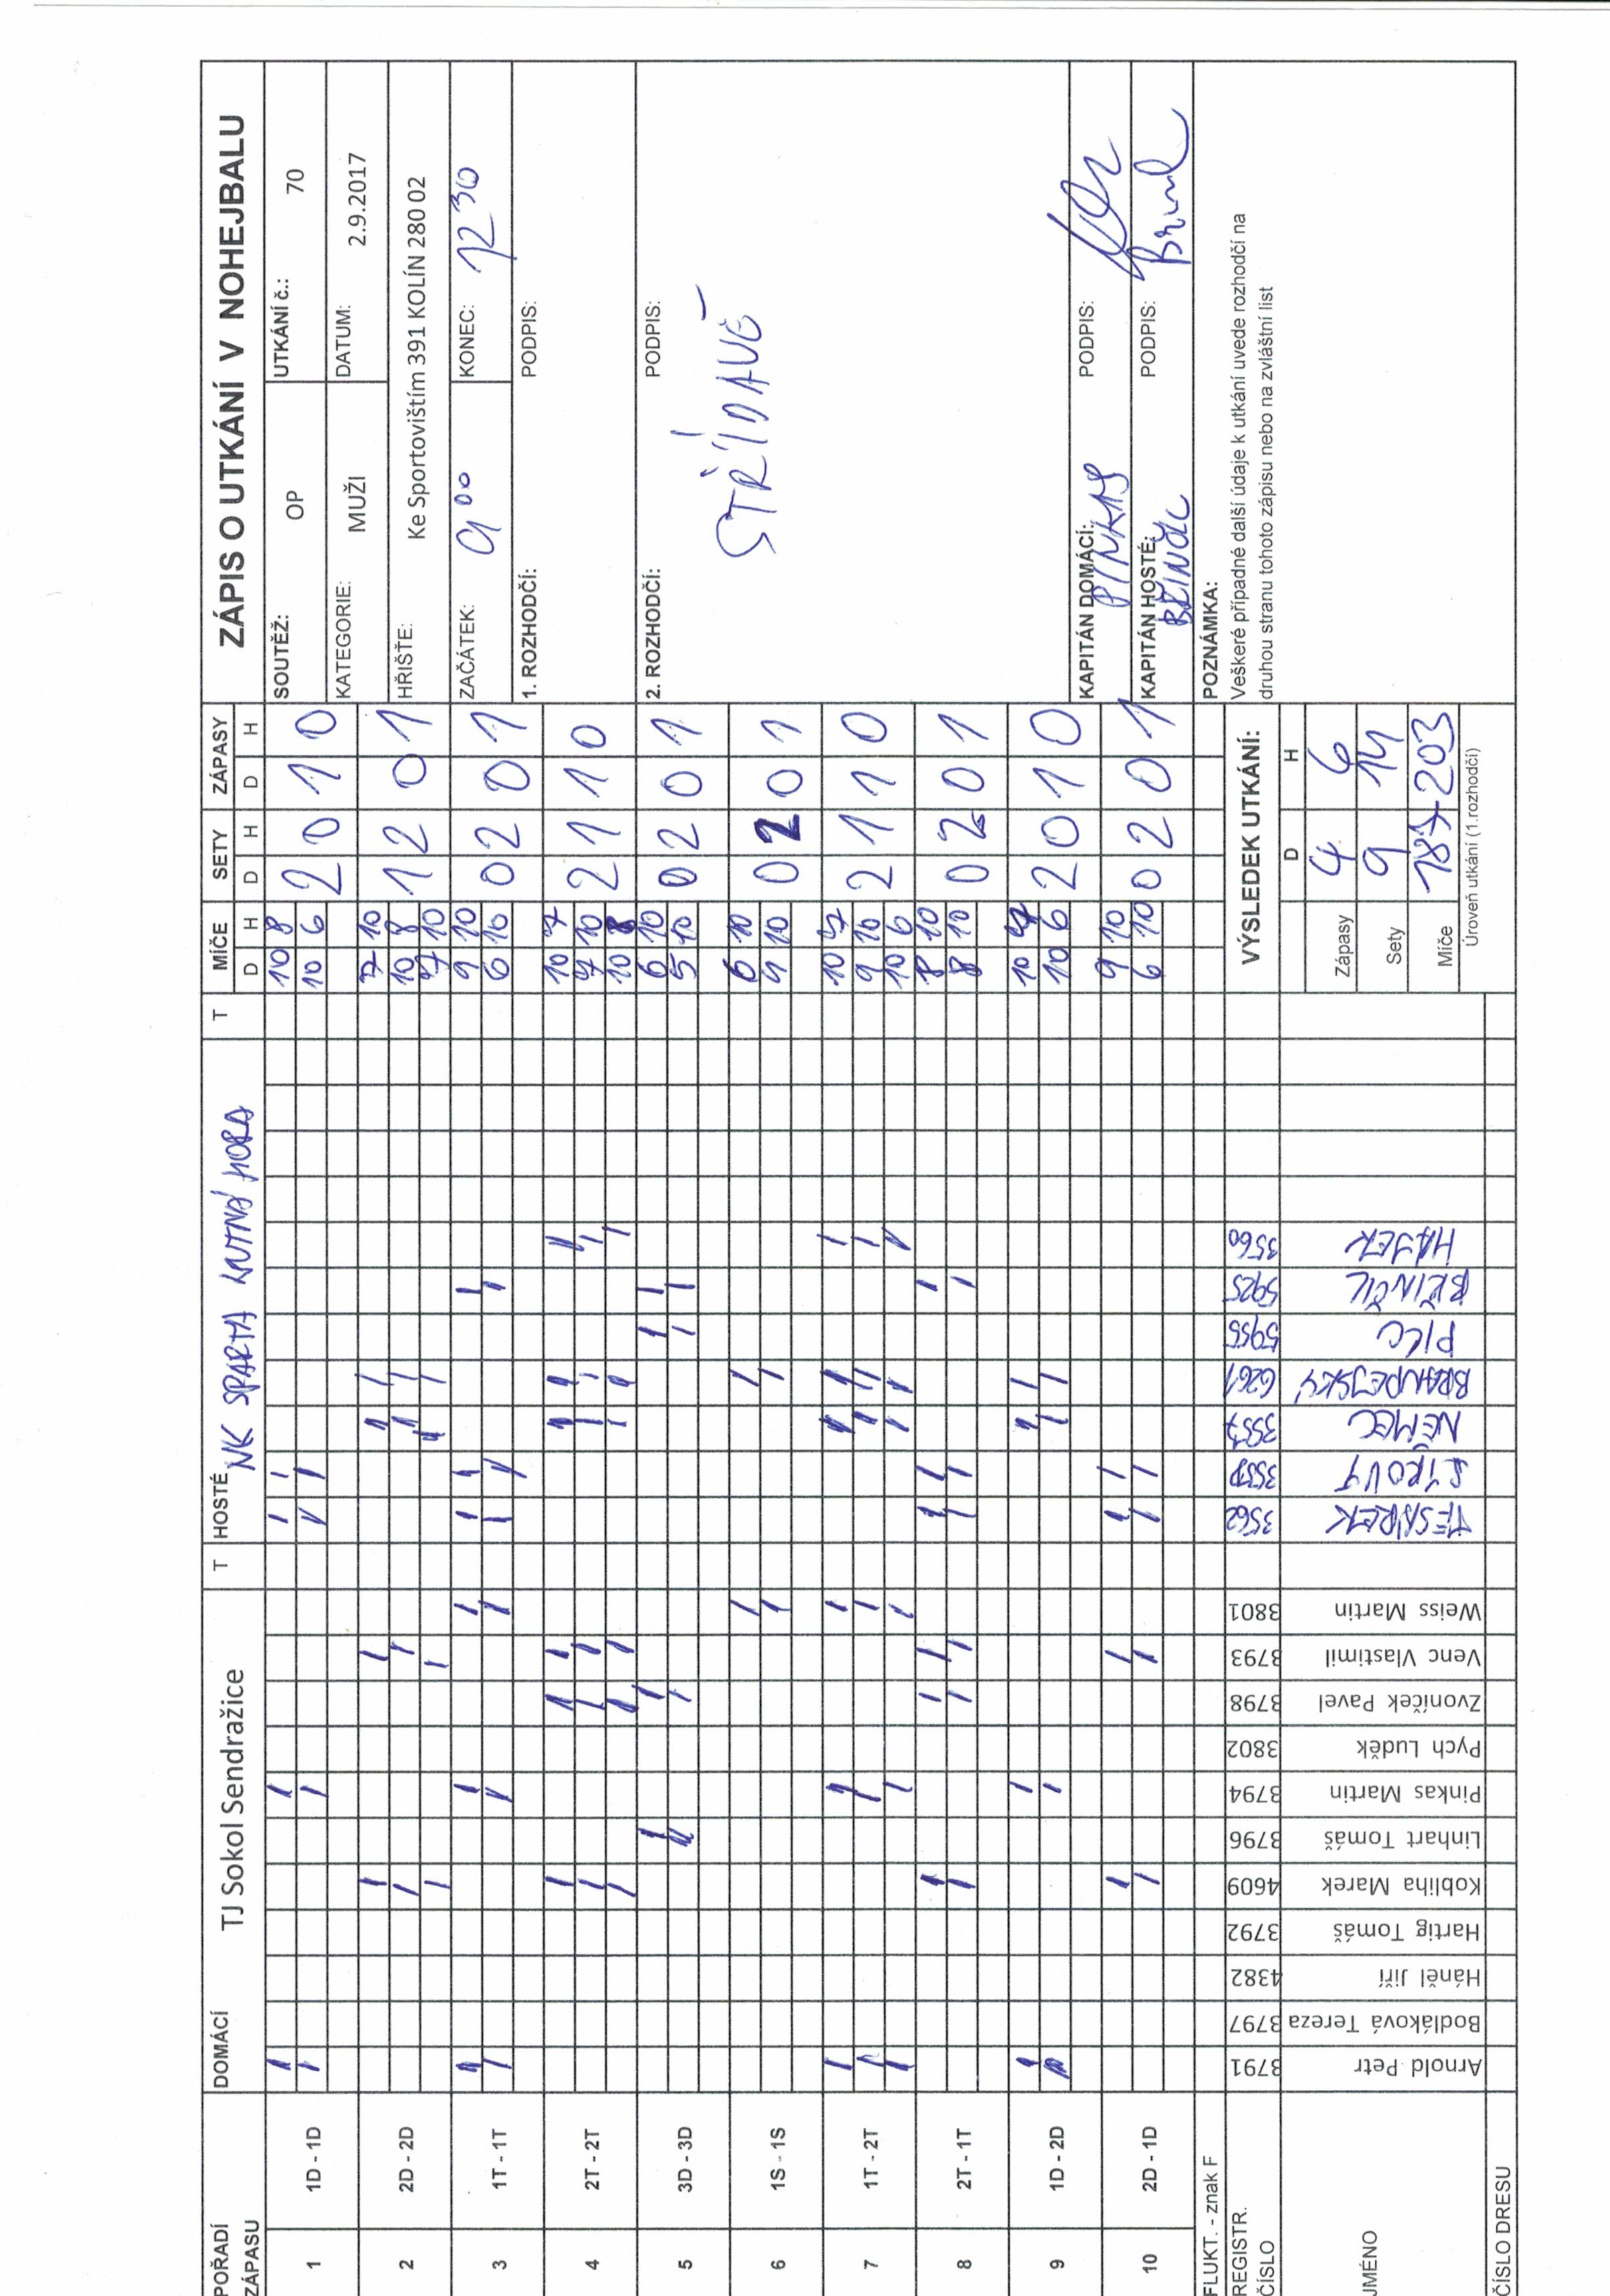 ZÁPIS O UTKÁNÍ V NOHEJBALU
SOUTĚŽ: OP UTKÁNÍ č.: 70
KATEGORIE: MUŽI DATUM: 2.9.2017
HŘIŠTE: Ke Sportovištím 391 KOLÍN 280 02
ZAČÁTEK: 9 00 KONEC: 12 30
1. ROZHODČÍ: PODPIS:
2. ROZHODČÍ: PODPIS:
STŘÍDAVĚ
KAPITÁN DOMÁCÍ: PINKAS PODPIS:
KAPITÁN HOSTÉ: PODPIS:
POZNÁMKA:
Veškeré případné další údaje k utkání uvede rozhodčí na
druhou stranu tohoto zápisu nebo na zvláštní list
POŘADÍ ZÁPASU DOMÁCÍ TJ Sokol Sendražice T HOSTÉ NK SPARTA KUTNÁ HORA T MÍČE SETY ZÁPASY
D H D H D H
1 1D - 1D 10 8 2 0 1 0
10 6
2 2D - 2D 7 10 1 2 0 1
10 8
7 10
3 1T - 1T 9 10 0 2 0 1
6 10
4 2T - 2T 10 7 2 1 1 0
7 10
10 8
5 3D - 3D 6 10 0 2 0 1
5 10
6 1S - 1S 6 10 0 2 0 1
9 10
7 1T - 2T 10 7 2 1 1 0
9 10
10 6
8 2T - 1T 8 10 0 2 0 1
8 10
9 1D - 2D 10 7 2 0 1 0
10 6
10 2D - 1D 9 10 0 2 0 1
6 10
FLUKT. - znak F
REGISTR. ČÍSLO 3791 3797 4382 3792 4609 3796 3794 3802 3798 3793 3801 3562 3557 6261 5955 5925 3560
JMÉNO
Arnold Petr
Bodláková Tereza
Háněl Jiří
Hartig Tomáš
Kobliha Marek
Linhart Tomáš
Pinkas Martin
Pych Luděk
Zvoníček Pavel
Venc Vlastimil
Weiss Martin
TESÁREK
NĚMEC
BRANDEJSKÝ
PILC
HÁJEK
ČÍSLO DRESU
VÝSLEDEK UTKÁNÍ:
D H
Zápasy 4 6
Sety 9 14
Míče 187-203
Úroveň utkání (1.rozhodčí)